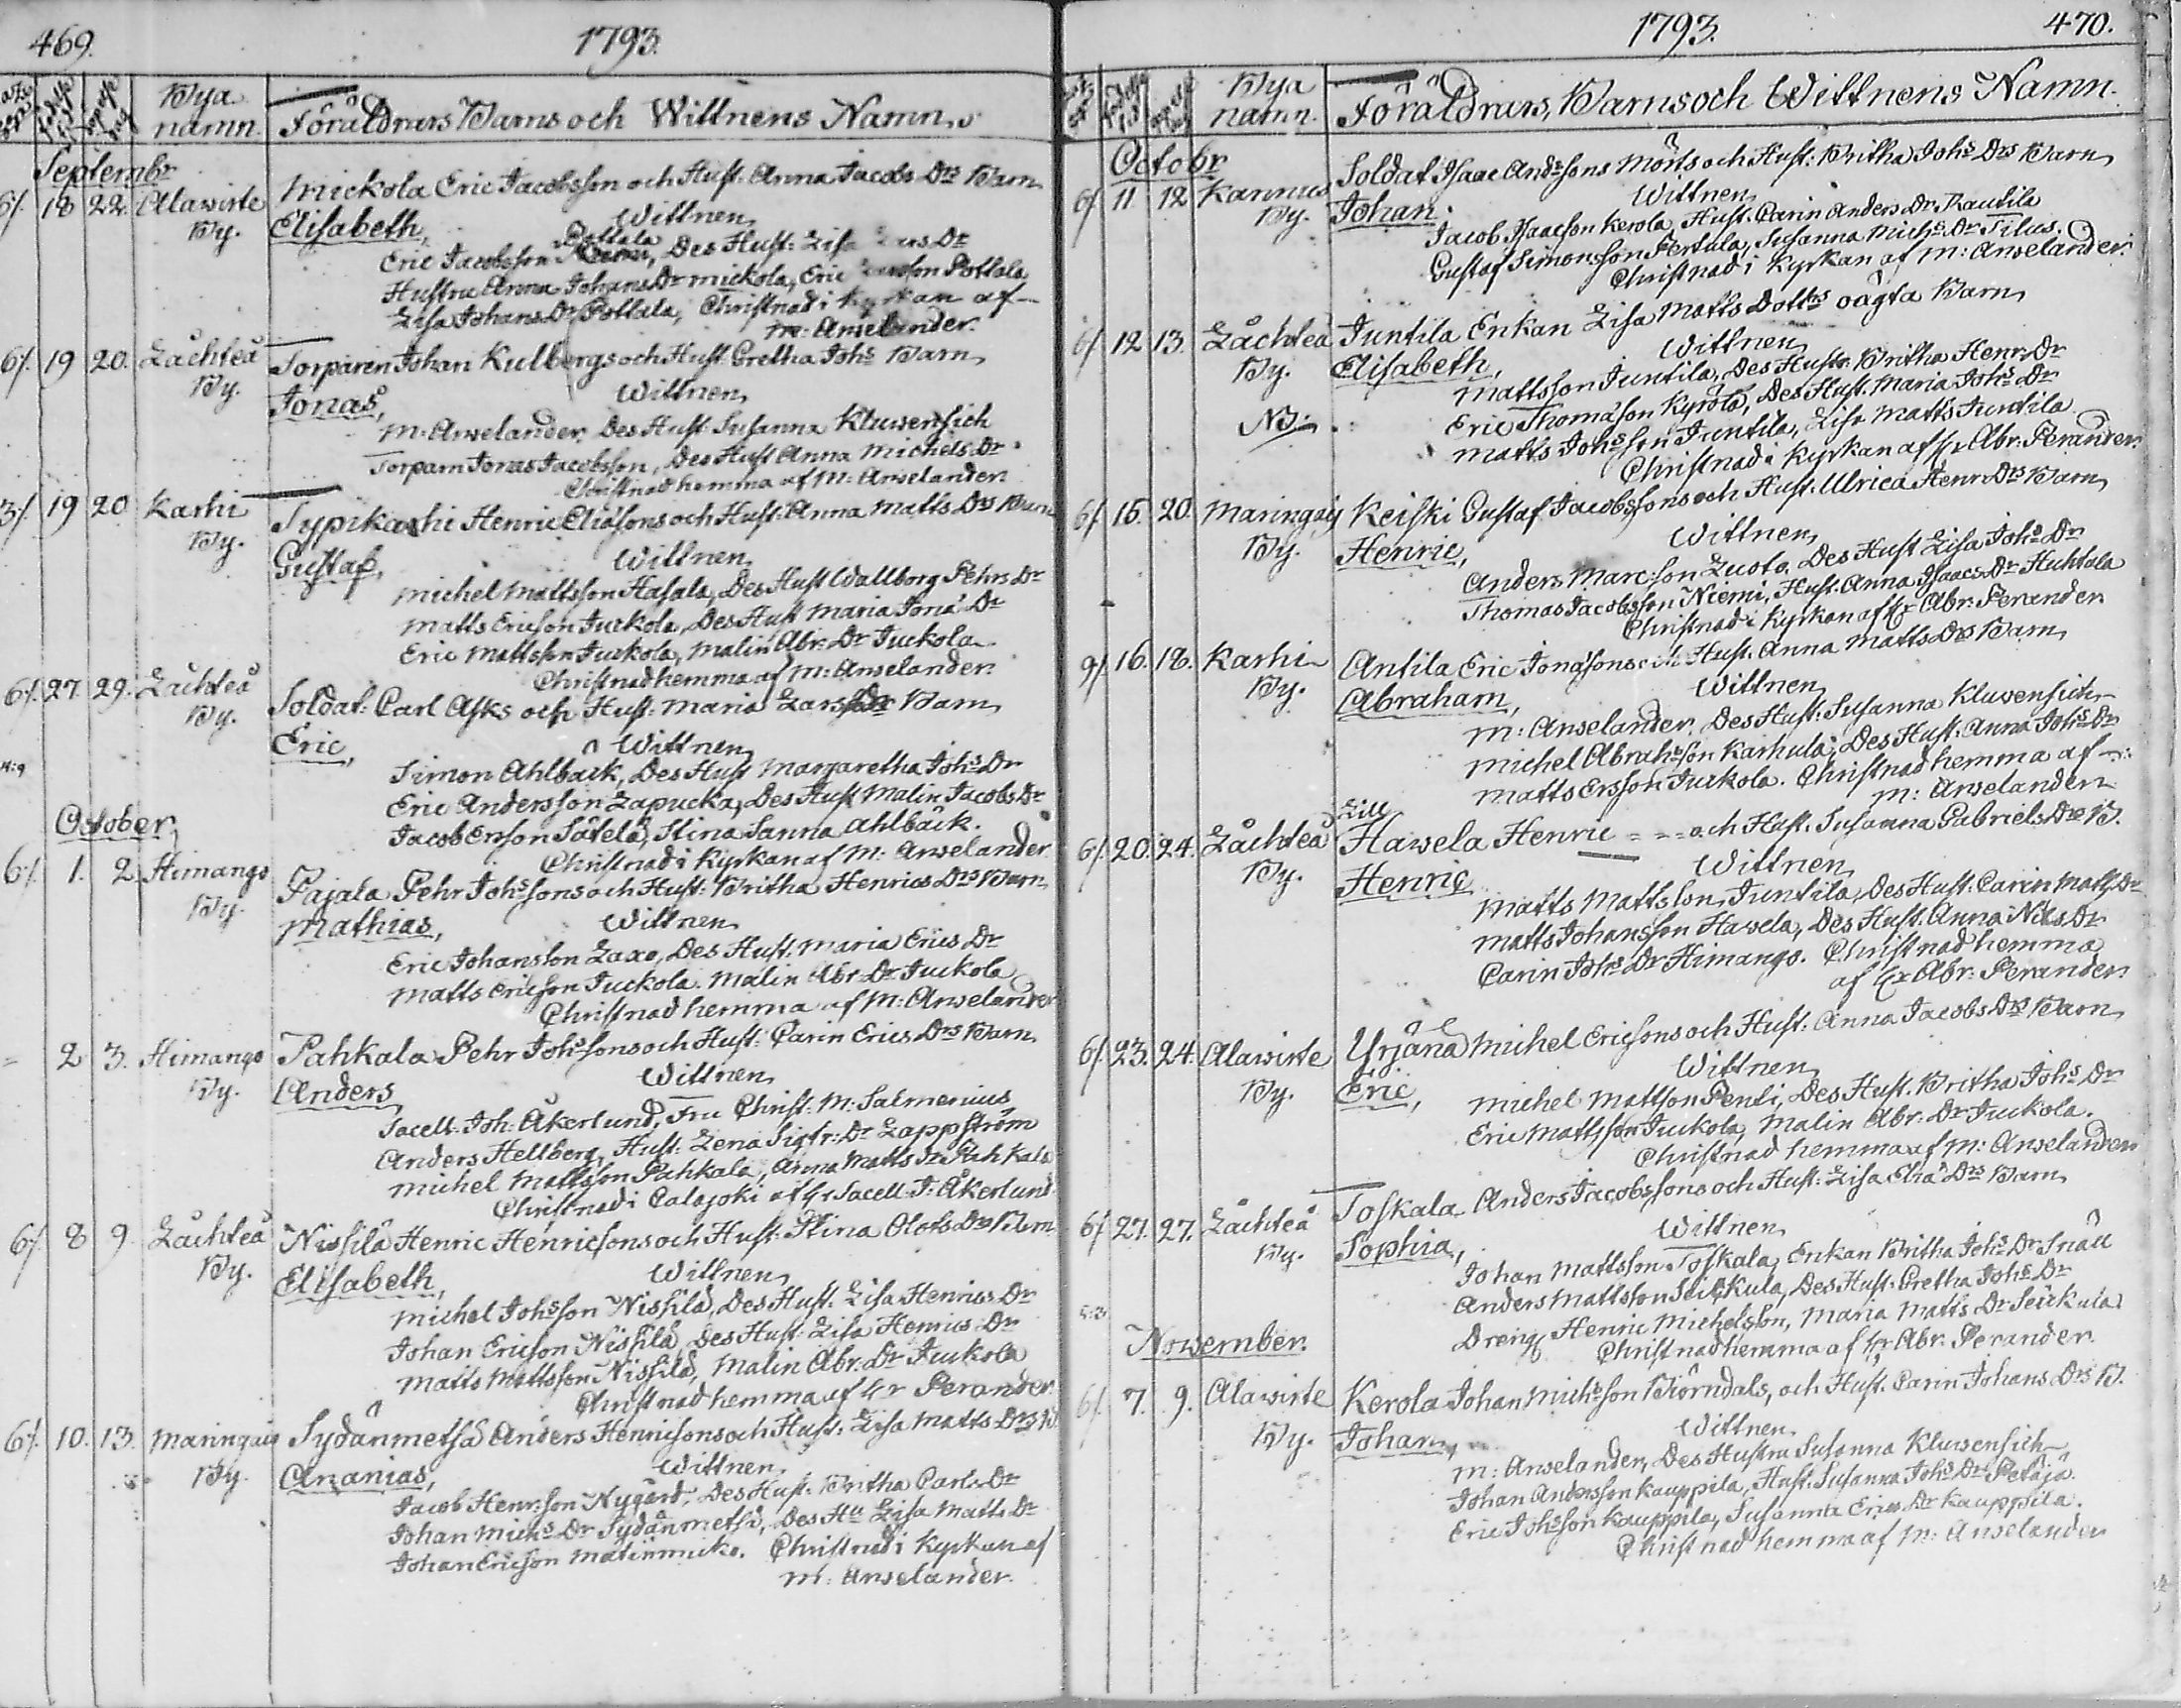 469. 1793.
Bya
namn. Föräldrars Barns och Wittnens Namn.
Septembr
6/. 18 22. Alawirte Mickola Eric Jacobsson och Hust. Anna Jacobs Drs Barn
By. Elisabeth, Wittnen
Pottala
Eric Jacobsson, Des Hust: Lisa Dr
Hustru Anna Johans Dr Mickola, Eric Pottala
Lisa Johans Dr Pottala, Christnad i Kyrkan af
M: Anselander.
6/. 19 20. Låchteå Torparen Johan Kulbergs och Hust. Gretha Johs Barn
By. Jonas, Wittnen
M: Anselander, Des Hust Susanna Kluwensich
Torparn Jonas Jacobsson, Des Hust Anna Michels Dr
Christnad hemma af M: Anselander
3/. 19 20 Karhi Typikarhi Henric Eliæsons och Hust: Anna Matts Drs Barn
By. Gustaf, Wittnen
Michel Mattsson Hasala, Des Hust Wallborg Pehrs Dr
Matts Ericson Juckola, Des Hust Maria Jonæ Dr
Eric Mattsson Juckola, Malin Abr: Dr Juckola
Christnad hemma af M: Anselander.
6/. 27. 29. Låchteå Soldat: Carl Asks och Hust: Maria Lars Dr Barn
By. Eric, Wittnen
Simon Ahlbäck, Des Hust Margaretha Johs Dr
Eric Andersson Lapucka, Des Hust Malin Jacobs Dr
Jacob Ersson Säteла, Stina Sanna Ahlbäck.
Christnad i Kyrkan af M: Anselander
October
6/. 1. 2. Himango Pajala Pehr Johssons och Hust: Britha Henrics Drs Barn
By. Mathias, Wittnen
Eric Johansson Laxo, Des Hust: Maria Erics Dr
Matts Ericson Juckola. Malin Abr Dr Juckola
Christnad hemma af M: Anselander
= 2 3. Himango Pahkala Pehr Johssons och Hust: Carin Erics Drs Barn
By. Anders Wittnen
Sacell. Joh: Åkerlund, Fru Christ: M: Salmenius
Anders Hellberg, Hust: Lena Sigfr: Dr Lappström
Michel Mattsson Pahkala, Anna Matts Dr Pahkala
Christnad i Calajoki af Hr Sacell. J: Åkerlund
6/. 8 9. Låchteå Niskilä Henric Henricsons och Hust: Stina Olofs Drs Barn
By. Elisabeth, Wittnen
Michel Johsson Niskilä, Des Hust. Lisa Henrics Dr
Johan Ericson Niskilä, Des Hust: Lisa Henrics Dr
Matts Mattsson Niskilä, Malin Abr: Dr Juckola
Christnad hemma af Hr Perander.
6/. 10. 13. Maringais Sydänmetsä Anders Henricsons och Hust: Lisa Matts Drs B.
By. Ananias, Wittnen
Jacob Henr:son Nygård, Des Hust: Britha Carls Dr
Johan Michs Dr Sydänmetsä, Des Hu Lisa Matts Dr
Johan Ericson Matinmicko. Christnad i Kyrkan af
M: Anselander.
1793. 470.
Bya
namn. Föräldrars, Barns och Wittnens Namn.
Octobr
6/ 11 12 Kannus Soldat Isaac Anderssons Mörts och Hust: Britha Johs Drs Barn
By. Johan. Wittnen
Jacob Isaacson Kerola, Hust. Carin Anders Dr Rautila
Gustaf Simonsson Pertula, Susanna Michs Dr Tilus.
Christnad i Kyrkan af M: Anselander.
6/ 12 13. Låchteå Juntila Enkan Lisa Matts Dotters oägta Barn
By. Elisabeth, Wittnen
Mattsson Juntila, Des Hustr. Britha Henr: Dr
NB. Eric Thomason Kyrölä, Des Hust. Maria Johs Dr
Matts Johsson Juntila, Lisa Matts Juntila
Christnad i Kyrkan af Hr Abr: Perander.
6/. 16. 20. Maringais Keiski Gustaf Jacobssons och Hust: Ulrica Henr Drs Barn
By. Henric, Wittnen
Anders Marc:son Luoto, Des Hust Lisa Johs Dr
Thomas Jacobsson Niemi, Hust. Anna Isaacs Dr Huhtala
Christnad i Kyrkan af Hr Abr: Perander
9/. 16. 18. Karhi Antila Eric Jonæsons och Hust. Anna Matts Drs Barn
By. Abraham, Wittnen
M: Anselander, Des Hust: Susanna Kluwensich
Michel Abrahsson Karhula, Des Hust: Anna Johs Dr
Matts Ersson Juckola. Christnad hemma af
M: Anselander
Lill
6/. 20. 24. Låchteå Hawela Henric = = = och Hust. Susanna Gabriels Drs B.
By. Henric Wittnen
Matts Mattsson Juntila, Des Hust. Carin Matts Dr
Matts Johansson Hawela, Des Hust. Anna Nils Dr
Carin Johs Dr Himango. Christnad hemma
af Hr Abr: Perander
6/. 23. 24. Alawirte Yrjänä Michel Ericsons och Hust: Anna Jacobs Drs Barn
By. Eric, Wittnen
Michel Mattson Penti, Des Hust. Britha Johs Dr
Eric Mattsson Juckola, Malin Abr: Dr Juckola.
Christnad hemma af M: Anselander
6/ 27. 27. Låchteå Toskala Anders Jacobssons och Hust: Lisa Eliæ Drs Barn
By. Sophia, Wittnen
Johan Mattsson Toskala, Enkan Britha Johs Dr Snäll
Anders Mattsson Seickula, Des Hust: Gretha Johs Dr
Dreng Henric Michelsson, Maria Matts Dr Seickula
Christnad hemma af Hr Abr. Perander.
Nowember.
6/. 7. 9. Alawirte Kerola Johan Michsson Biörndals, och Hust. Carin Johans Drs B.
By. Johan, Wittnen
M: Anselander, Des Hustru Susanna Kluwensich
Johan Andersson Kauppila, Hust. Susanna Johs Dr Petäjä
Eric Johsson Kauppila, Susanna Erics Dr Kauppila.
Christnad hemma af M: Anselander